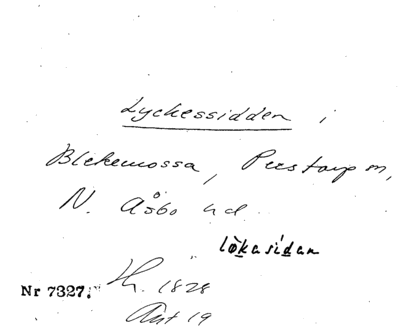 Lyckessidden i
Blekemossa, Perstorp sn,
N. Åsbo hd
lökasidan
Nr 7327. H. 1828
Ant 19